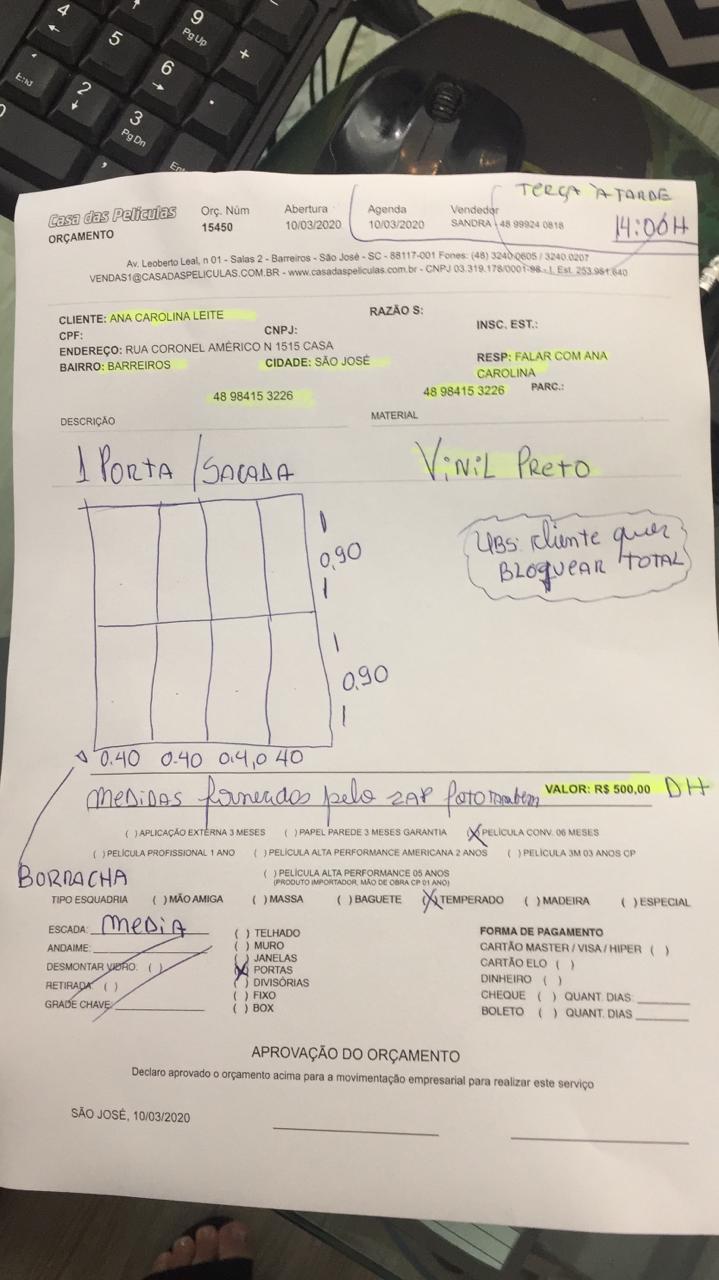 4 5 6 9 PgUp + 2 3 PgDn
TERÇA À TARDE
14:00H
Casa das Películas
ORÇAMENTO
Orç. Núm Abertura Agenda Vendedor
15450 10/03/2020 10/03/2020 SANDRA - 48 99924 0818
Av. Leoberto Leal, n 01 - Salas 2 - Barreiros - São José - SC - 88117-001 Fones: (48) 3240.0605 / 3240.0207
VENDAS1@CASADASPELICULAS.COM.BR - www.casadaspeliculas.com.br - CNPJ 03.319.178/0001-98 - I. Est. 253.951.640
CLIENTE: ANA CAROLINA LEITE RAZÃO S:
CPF: CNPJ: INSC. EST.:
ENDEREÇO: RUA CORONEL AMÉRICO N 1515 CASA
BAIRRO: BARREIROS CIDADE: SÃO JOSÉ RESP: FALAR COM ANA
CAROLINA
48 98415 3226 48 98415 3226 PARC.:
DESCRIÇÃO MATERIAL
1 PORTA / SACADA VINIL PRETO
OBS: cliente quer
BLOQUEAR TOTAL
0,90
0,90
0.40 0.40 0.4,0 40
MEDIDAS fornecidos pelo ZAP foto também VALOR: R$ 500,00 DH
( ) APLICAÇÃO EXTERNA 3 MESES ( ) PAPEL PAREDE 3 MESES GARANTIA (X) PELÍCULA CONV. 06 MESES
( ) PELÍCULA PROFISSIONAL 1 ANO ( ) PELÍCULA ALTA PERFORMANCE AMERICANA 2 ANOS ( ) PELÍCULA 3M 03 ANOS CP
BORRACHA
( ) PELÍCULA ALTA PERFORMANCE 05 ANOS
(PRODUTO IMPORTADOR, MÃO DE OBRA CP 01 ANO)
TIPO ESQUADRIA ( ) MÃO AMIGA ( ) MASSA ( ) BAGUETE (X) TEMPERADO ( ) MADEIRA ( ) ESPECIAL
ESCADA: MEDIA
ANDAIME:
DESMONTAR VIDRO: ( )
RETIRADA: ( )
GRADE CHAVE:
( ) TELHADO
( ) MURO
( ) JANELAS
(X) PORTAS
( ) DIVISÓRIAS
( ) FIXO
( ) BOX
FORMA DE PAGAMENTO
CARTÃO MASTER / VISA / HIPER ( )
CARTÃO ELO ( )
DINHEIRO ( )
CHEQUE ( ) QUANT. DIAS:
BOLETO ( ) QUANT. DIAS
APROVAÇÃO DO ORÇAMENTO
Declaro aprovado o orçamento acima para a movimentação empresarial para realizar este serviço
SÃO JOSÉ, 10/03/2020